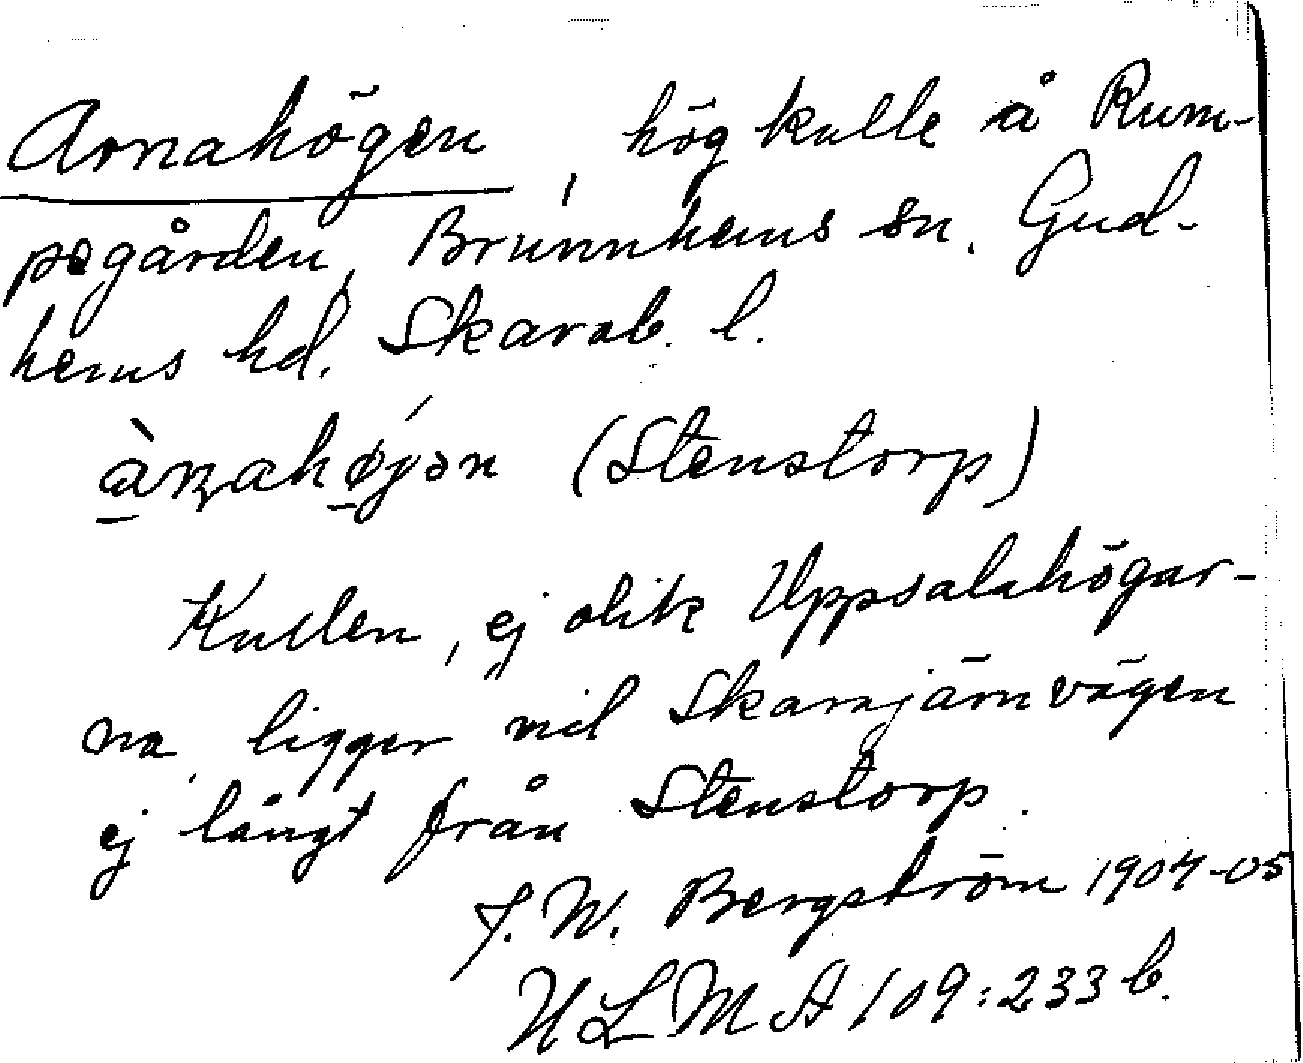 Arnahögen, hög kulle å Rum-
pegården, Brunnhems sn. Gud-
hems hd. Skarab. l.
(Stenstorp)
Kullen, ej olik Uppsalahögar-
na, ligger vid Skarajärnvägen
ej långt från Stenstorp.
J. W. Bergström 1904-05
ULMA 109:233 b.